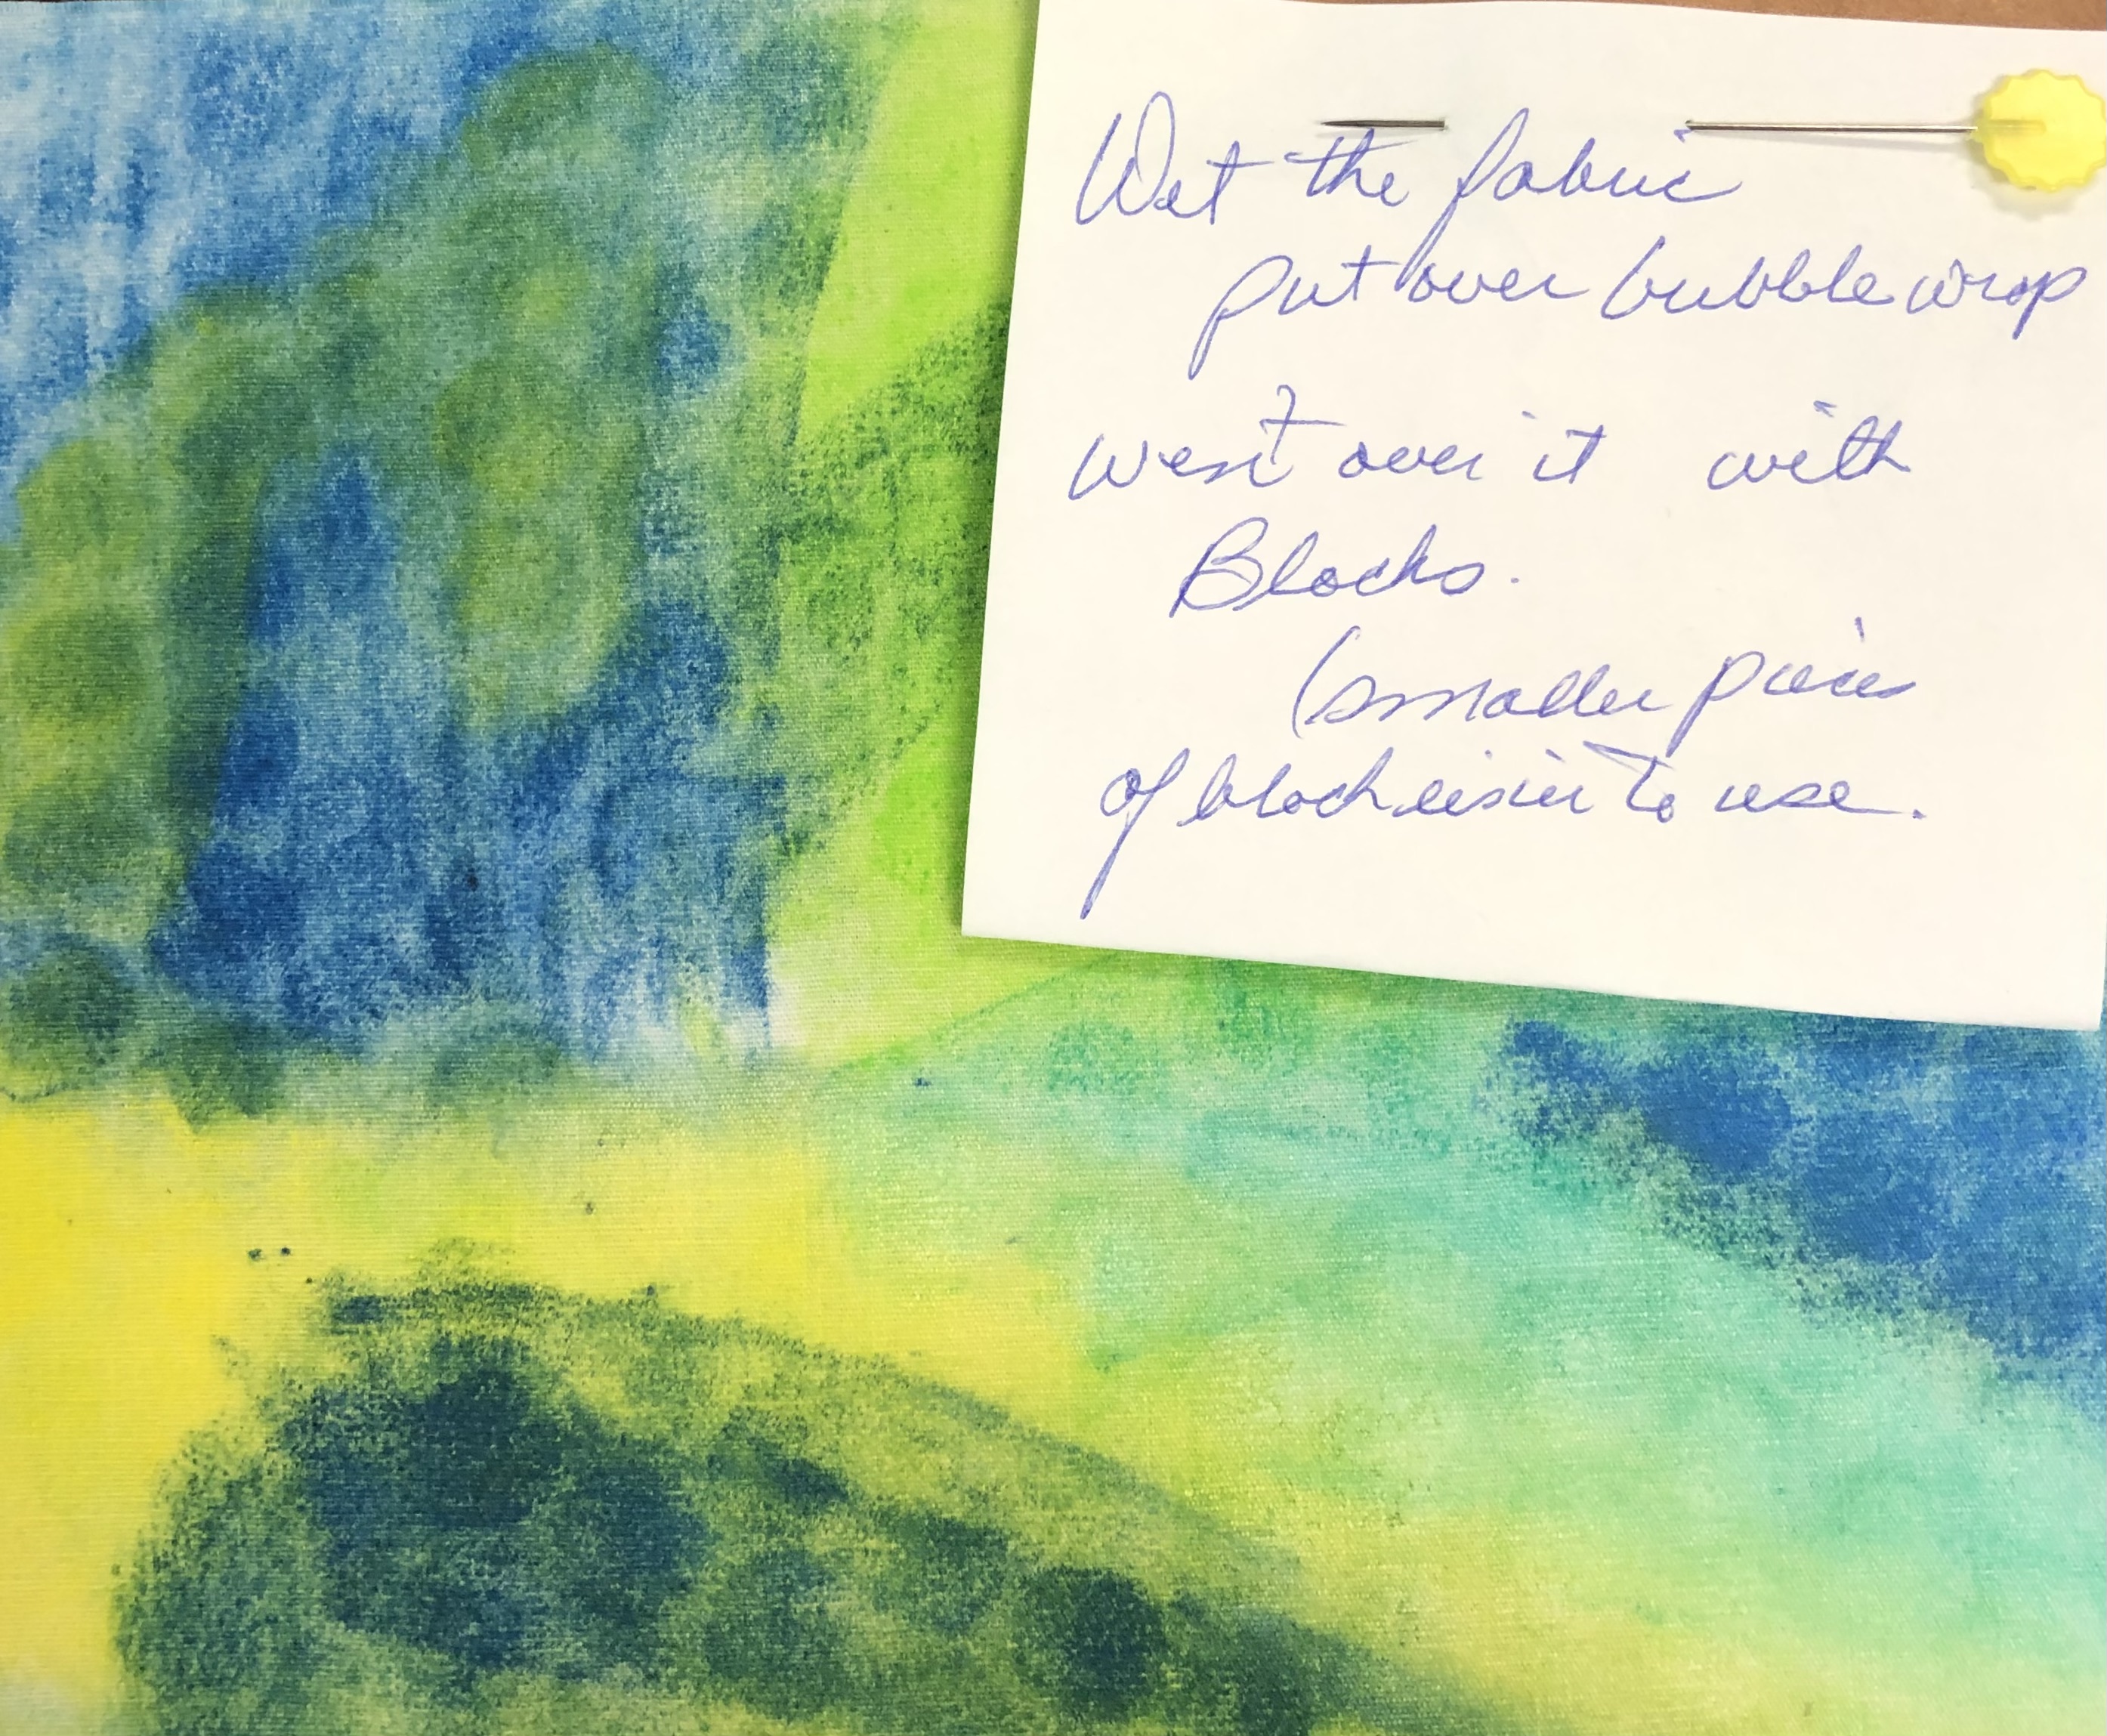 Wet the fabric
put over bubble wrap
went over it with
Blocks.
(smaller pieces
of block easier to use.